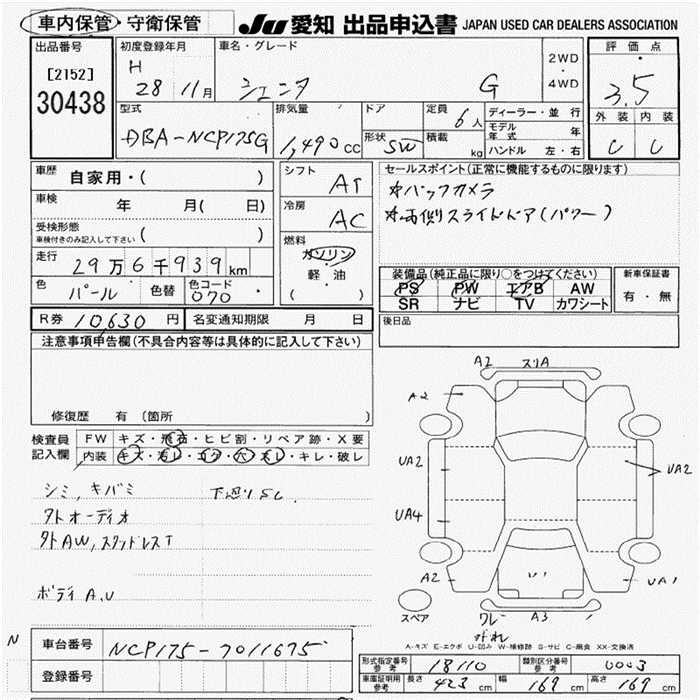 車内保管・守衛保管
JU 愛知 出品申込書 JAPAN USED CAR DEALERS ASSOCIATION
出品番号
[2152]
30438
初度登録年月
H 28 11月
車名・グレード
シエンタ G
2WD
・
4WD
評価点
3.5
外装 内装
C C
型式
DBA-NCP175G
排気量
1,490 CC
ドア
形状 SW
定員 6人
積載 kg
ディーラー・並行
モデル年式 年
ハンドル 左・右
車歴 自家用・( )
車検 年 月( 日)
受検形態
車検付きのみ記入して下さい ( )
走行 29万6千939km
色 パール 色替 色コード 070
シフト AT
冷房 AC
燃料
ガソリン
軽・油
( )
セールスポイント(正常に機能するものに限ります)
*バックカメラ
*両側スライドドア(パワー)
装備品(純正品に限り○をつけてください)
PS PW エアB AW
SR ナビ TV カワシート
新車保証書
有・無
R券 10,630円 名変通知期限 月 日
後日品
注意事項申告欄(不具合内容等は具体的に記入して下さい)
修復歴 有 (箇所 )
検査員記入欄
FW キズ・飛石・ヒビ割・リペア跡・X要
内装 キズ・汚レ・コゲ・穴・スレ・キレ・破レ
シミ,キバミ 下廻りSC
外オーディオ
外AW,スタッドレスT
ボディA,U
A2 スリA
A2
UA2 UA2
UA4
A2 U1 UA1
スペア
ワレ A3
A-キズ E-エクボ U-凹み W-補修跡 S-サビ C-腐食 XX-交換済
N
車台番号 NCP175-7011675
登録番号
型式指定番号 参考 18110 類別区分番号 参考 0003
車庫証明用 参考 長さ 423 cm 幅 169 cm 高さ 169 cm